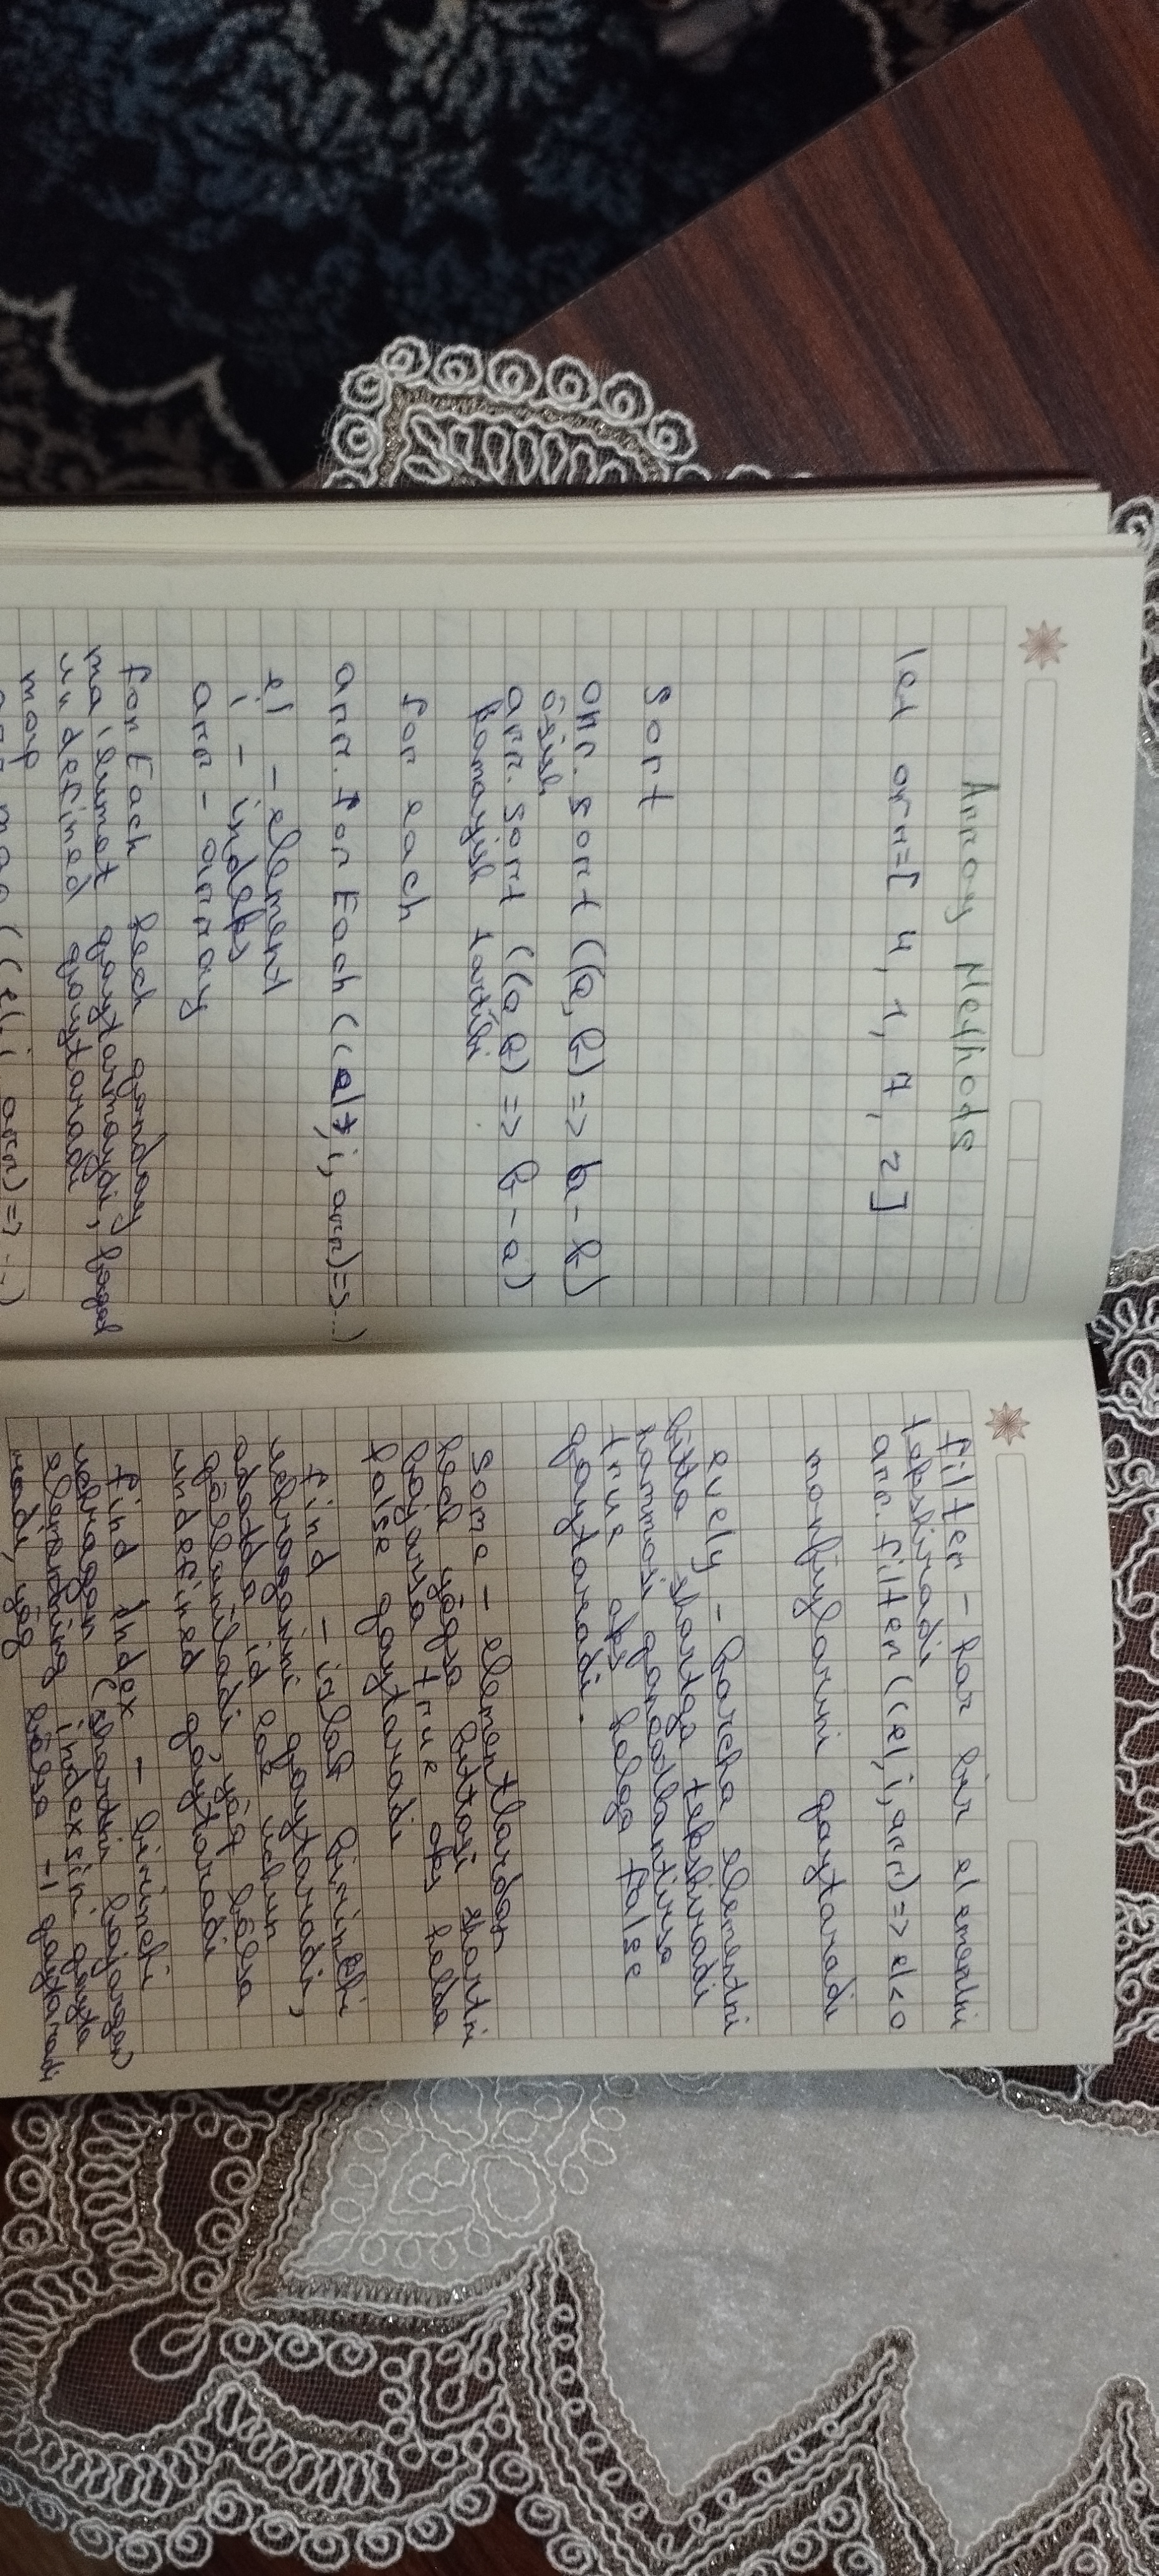 Array Methods
let arr=[4, 1, 7, 2]
sort
arr.sort((a, b) => a - b)
ōsish
arr.sort((a b) => b - a)
kamayish tartibi
for each
arr.forEach((elt, i, arr)=>...)
el - element
i - indeks
arr - array
forEach hech qanday
ma'lumot qaytarmaydi, faqat
undefined qaytaradi
map
arr)=> ...)
filter - har bir elementni
tekshiradi
arr.filter((el, i, arr)=> el<0
monfiylarini qaytaradi
every - barcha elementni
bitta shartga tekshiradi
hammasi qanoatlantirsa
true aks holga false
qaytaradi.
some - elementlardan
hech yōqsa bittasi shartni
bajarsa true aks holda
false qaytaradi
find - izlab birinchi
uchraganini qaytaradi,
odatda id lar uchun
qōllaniladi yōq bōlsa
undefined qaytaradi
find Index - birinchi
uchragan (shartni bajargan)
elementning indexsini qayta
radi, yōq bōlsa -1 qaytaradi